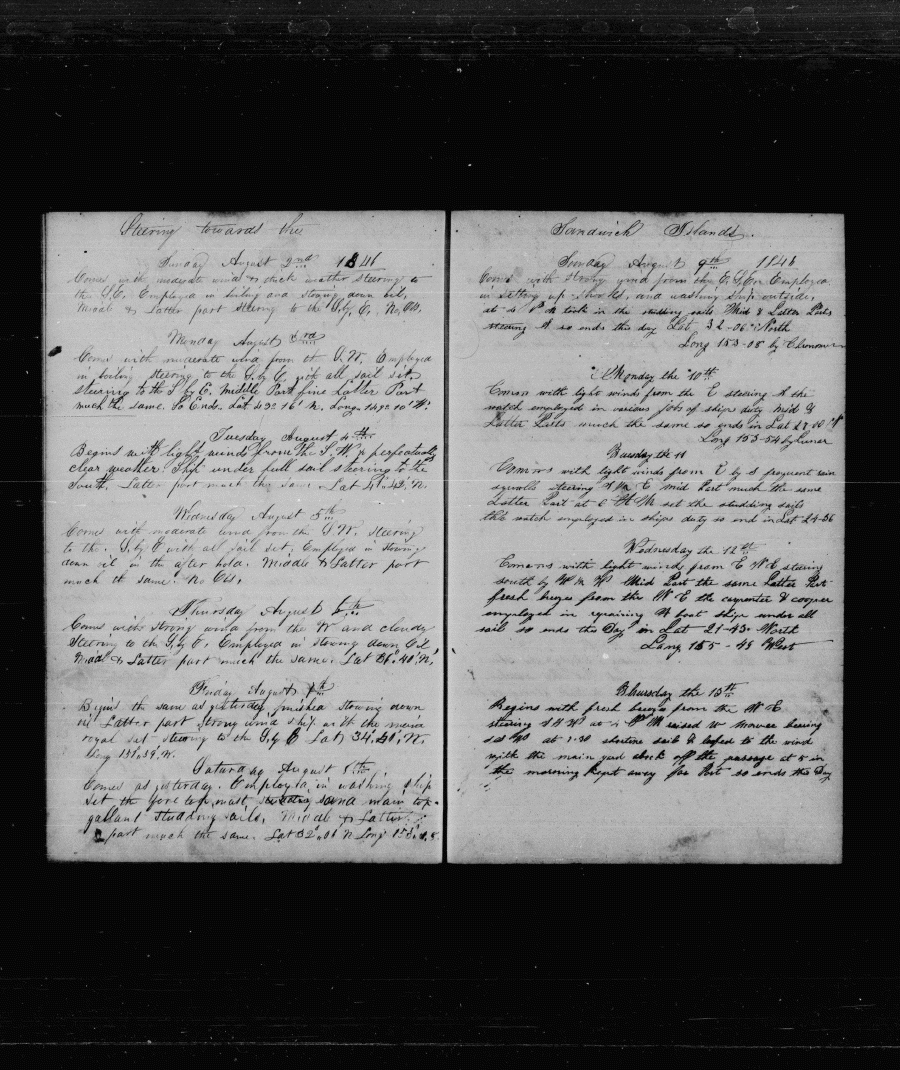 Steering towards the
Sunday August 2nd 1846
Comes with moderate wind & thick weather steering to
the S.E. Employed in boiling and stowing down oil,
Middle & Latter part steering to the S. by E. No Obs.
Monday August 3rd
Comes with moderate wind from the S.W. Employed
in boiling steering to the S. by E. with all sail set.
steering to the S by E. Middle Part fine Latter Part
much the same. So Ends. Lat 43° 16' N. Long 149° 10' W.
Tuesday August 4th
Begins with light winds from the S.W. & perfectually
clear weather. Ship under full sail steering to the
South. Latter part much the same. Lat 41°.42' N.
Wednesday August 5th
Comes with moderate wind from the S.W. steering
to the S. by E with all sail set. Employed in stowing
down oil in the after hold. Middle & Latter part
much the same. No Obs,
Thursday August 6th
Comes with strong wind from the W and cloudy
Steering to the S. by E. Employed in stowing down Oil
Midd & Latter part much the same. Lat 36°.40' N.
Friday August 7th
Begins the same as yesterday finished stowing down
oil Latter part strong wind ship with the main
royal set steering to the S. by E Lat 34.40' N.
Long 151°.39' W.
Saturday August 8th
Comes as yesterday. Employed in washing ship
Set the fore top mast, and main top-
gallant studding sails, Middle & Latter
part much the same. Lat 32°.06 N Long 153°
Sandwich Islands.
Sunday August 9th 1846
Comes with strong wind from the E.S.E. Employed
in setting up shrouds, and washing ship outside,
at 4 P M took in the studding sails Mid & Latter Parts
steering S so ends this day Lat 32-06 North
Long 153-08 by Chronom
Monday the 10th
Comes with light winds from the E steering S the
watch employed in various jobs of ships duty Mid &
Latter Parts much the same so ends in Lat 27-00 N
Long 153-54 by Lunar
Tuesday the 11
Comens with light winds from E by S frequent rain
squalls steering Mid Part much the same
Latter Part at set the studding sails
the watch employed in ships duty so end in Lat 24-36
Wednesday the 12th
Comens with light winds from E N E steering
south by W Mid Part the same Latter Part
fresh breeze from the N E the carpenter & cooper
employed in repairing a boat ships under all
sail so ends this Day in Lat 21-43 North
Long 155-49 West
Thursday the 13th
Begins with fresh breeze from the N E
steering at 4 P M raised Mowee bearing
at 7.30 shorten sail & luffed to the wind
with the main yard aback off the passage at 5 in
the morning kept away for Port so ends the Day